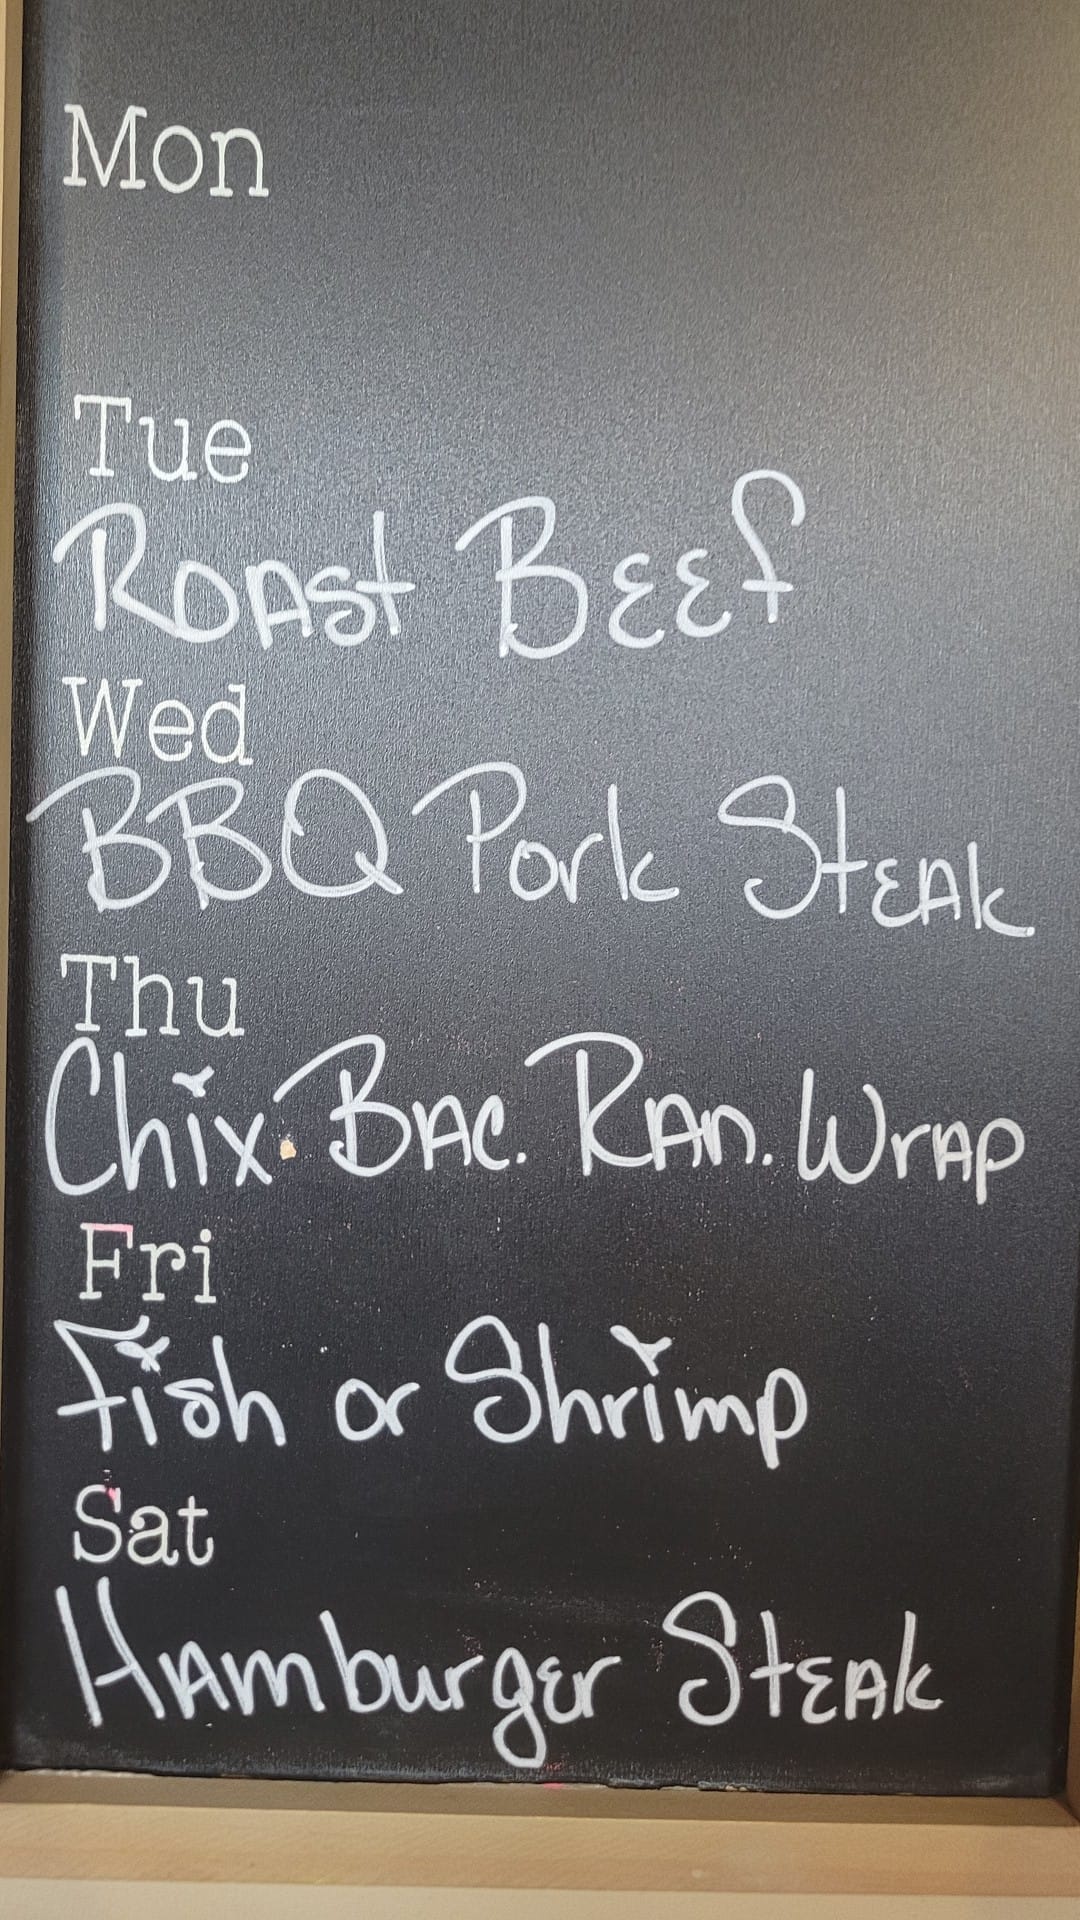 Mon
Tue
Roast Beef
Wed
BBQ Pork Steak
Thu
Chix. Bac. Ran. Wrap
Fri
Fish or Shrimp
Sat
Hamburger Steak